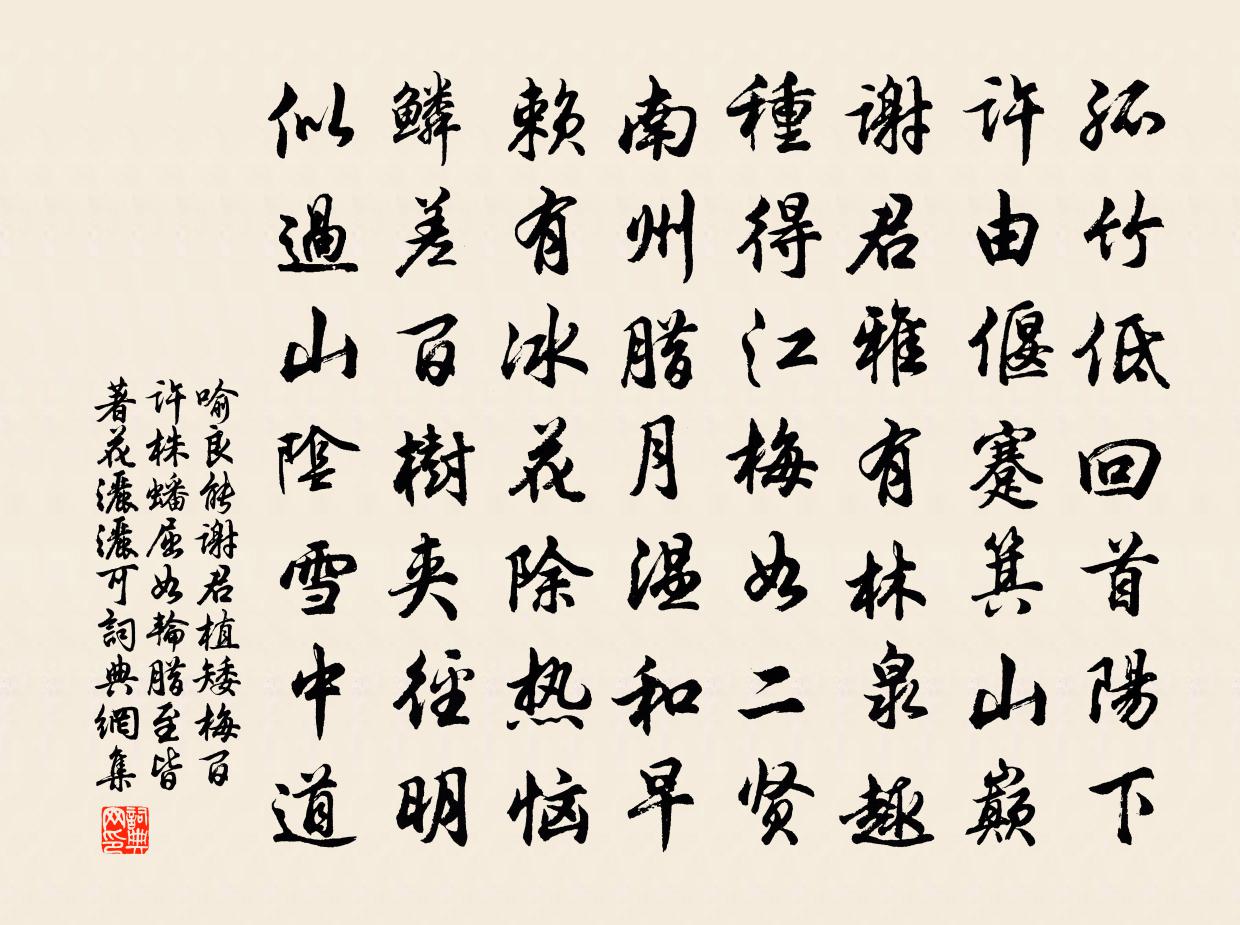 孤竹低回首陽下
許由偃蹇箕山巔
謝君雅有林泉趣
種得江梅如二贤
南州腊月温和早
赖有冰花除热恼
鱗差百樹夹徑明
似過山陰雪中道
喻良能谢君植矮梅百
許株蟠屈如輪腊至皆
著花灑灑可詞典網集
詞典
网印